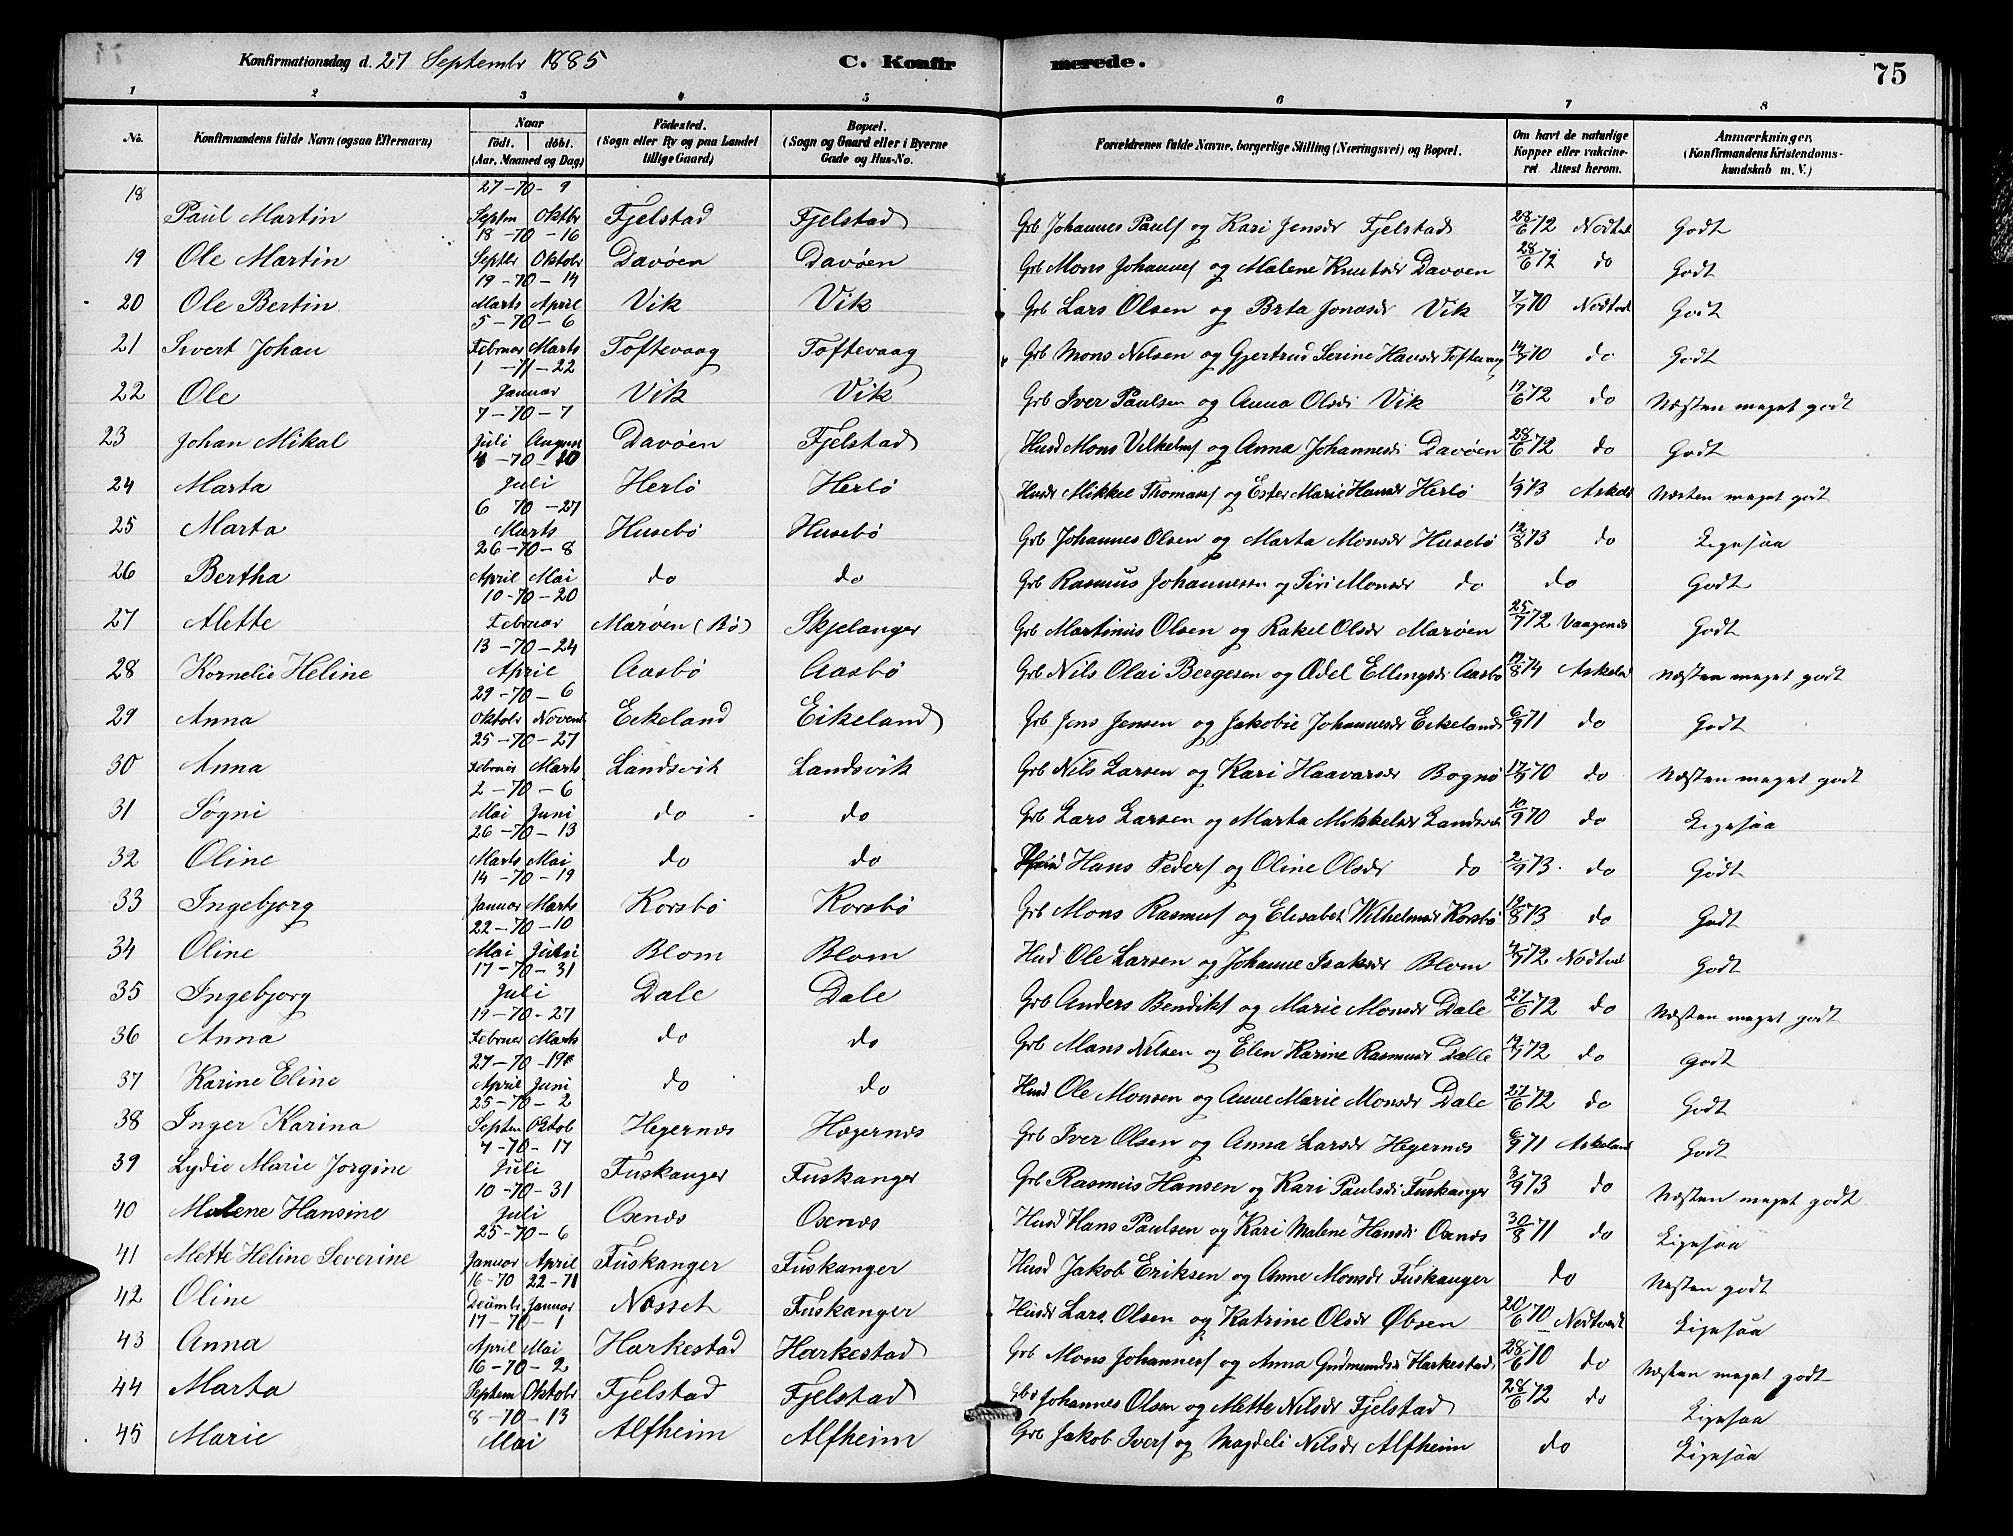 Konfirmationsdag d. 27 Septembr 1885 C. Konfirmerede. 75
1 2 3 4 5 6 7 8
No. Konfirmandens fulde Navn (ogsaa Efternavn) Naar født. døbt. (Aar, Maaned og Dag) Fødested. (Sogn eller By og paa Landet tillige Gaard) Bopæl. (Sogn og Gaard eller i Byerne Gade og Hus-No. Forældrenes fulde Navne, borgerlige Stilling (Næringsvei) og Bopæl. Om havt de naturlige Kopper eller vakcineret. Attest herom. Anmærkninger, (Konfirmandens Kristendomskundskab m. V.)
18 Paul Martin 27-70-9 Septm Oktbr Fjelstad Fjelstad Grb Johannes Pauls og Kari Jensdr Fjelstad 28/6 72 Nodtvdt Godt
19 Ole Martin 18-70-16 Septbr Oktobr Davøen Davøen Grb Mons Johannes og Malene Knutsdr Davøen 28/6 72 do Godt
20 Ole Bertin 19-70-14 Marts April Vik Vik Grb Lars Olsen og Brta Jonasdr Vik 7/7 70 Nodtvdt Godt
21 Sivert Johan 5-70-6 Februar Marts Toftevaag Toftevaag Grb Mons Nilsen og Gjertrud Serine Hansdr Toftevaag 14/7 70 do Godt
22 Ole 1-71-22 Januar Vik Vik Grb Iver Paulsen og Anna Olsdr Vik 6 72 do Næsten meget godt
23 Johan Mikal 7-70-7 Juli August Davøen Fjelstad Husd Mons Vilhelms og Anna Johannesdr Davøen 28/6 72 do Godt
24 Marta 4-70-10 Juli Herlø Herlø Husdr Mikkel Thomass og Ester Marie Hansdr Herlø 1/9 73 Askeld Næsten meget godt
25 Marta 6 70-27 Marts Husebø Husebø Grb Johannes Olsen og Marta Monsdr Husebø 12/8 73 do Ligesaa
26 Bertha 26-70-8 April Mai do do Grb Rasmus Johannessen og Siri Monsdr do do Godt
27 Alette 10-70-20 Februar Marøen (Bø) Skjelanger Grb Martinus Olsen og Rakel Olsdr Marøen 25/7 72 Vaagenes Godt
28 Kornelie Heline 13-70-24 April Aasbø Aasbø Grb Nils Olai Bergesen og Odel Ellingsdr Aasbø 17/8 74 Askeland Næsten meget godt
29 Anna 29-70-6 Oktobr Novemb Eekeland Eikeland Grb Jens Jensen og Jakobie Johannesdr Eekeland 6/9 71 do Godt
30 Anna 25-70-27 Februar Marts Landsvik Landsvik Grb Nils Larsen og Kari Haavarsdr Bognø 17/9 70 do Næsten meget godt
31 Søgni 2-70-6 Mai Juni do do Grb Lars Larsen og Marta Mikkelsdr Landsvik 10/9 70 do Ligesaa
32 Oline 26-70-13 Marts Mai do do Hans Peders og Oline Olsdr do 2/9 73 do Godt
33 Ingebjorg 14-70-19 Januar Marts Korsbø Korsbø Grb Mons Rasmus og Elisabet Wilhelmsdr Korsbø 12/8 73 do Godt
34 Oline 22-70-10 Mai Juli Blom Blom Husd Ole Larsen og Johanne Isaksdr Blom 4/7 72 Nodtvdt Godt
35 Ingebjorg 17-70-31 Juli Dale Dale Grb Anders Bendiks og Marie Monsdr Dale 27/6 72 do Næsten meget godt
36 Anna 11-70-27 Februar Marts do do Grb Mans Nilsen og Elen Karine Rasmusdr Dale 72 do Godt
37 Karine Eline 27-70-19 April Juni do do Husd Ole Monsen og Anne Marie Monsdr Dale 27/6 72 do Godt
38 Inger Karina 25-70-2 Septem Oktob Hegernæs Hægernæs Grb Iver Olsen og Anna Larsdr Hegernæs 6/9 71 Askeland Godt
39 Lydie Marie Jorgine 4-70-17 Juli Fuskanger Fuskanger Grb Rasmus Hansen og Kari Paulsdr Fuskanger 3/9 73 do Næsten meget godt
40 Malene Hansine 10-70-31 Juli Oxnæs Oxnæs Husd Hans Paulsen og Kari Malene Hansdr Oxnæs 30/8 71 do Ligesaa
41 Mette Heline Severine 25-70-6 Januar April Fuskanger Fuskanger Husd Jakob Eriksen og Anne Monsdr Fuskanger do Næsten godt
42 Oline 16-70 22-71 Decembr Januar Nosset Fuskanger Husdr Lars Olsen og Katrine Olsdr Øbsen 20/6 70 Nodtvedt Ligesaa
43 Anna 17-70-1 April Mai Harkestad Harkestad Grb Mons Johannes og Anna Gudmundsdr Harkestad 28/6 70 do Næsten meget godt
44 Marta 16-70-2 Septem Oktobr Fjelstad Fjelstad Gbr Johannes Olsen og Mette Nilsdr Fjelstad 28/6 72 do Ligesaa
45 Marie 8-70-13 Mai Alfheim Alfheim Grb Jakob Ivers og Magdeli Nilsdr Alfheim do Ligesaa